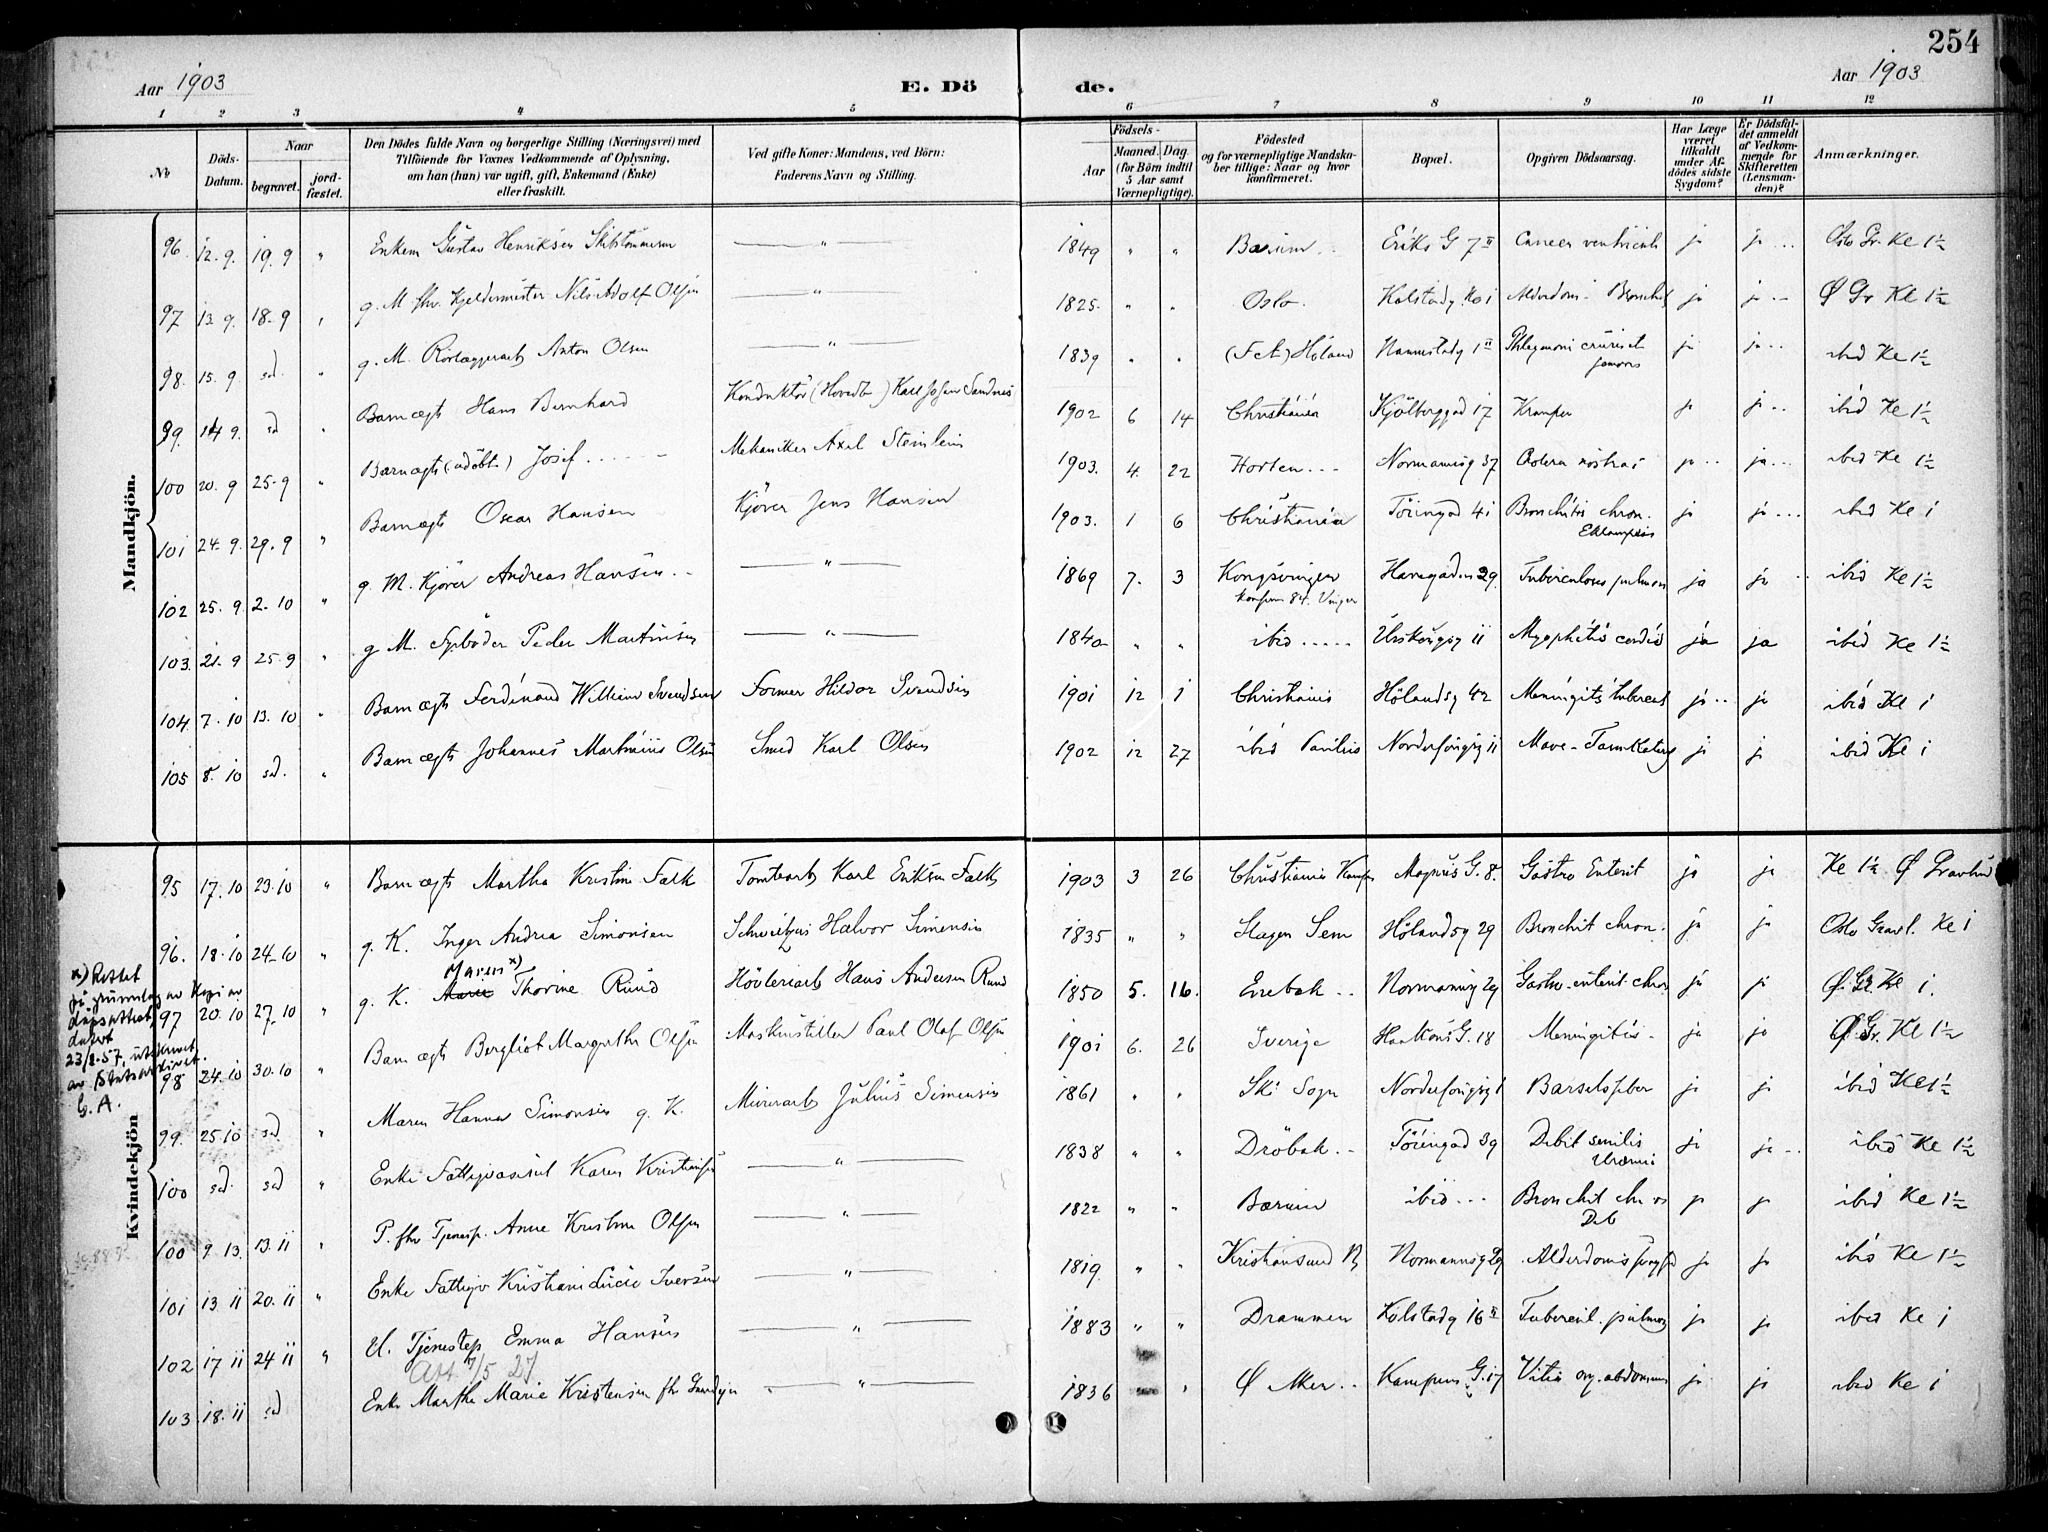 254
Aar 1903
E. Dö
de.
Aar 1903
1 2 3 4 5 6 7 8 9 10 11 12
No
Döds-Datum.
Naar
begravet.
jord-fæstet.
Den Dödes fulde Navn og borgerlige Stilling (Næringsvei) med
Tilföiende for Voxnes Vedkommende af Oplysning,
om han (hun) var ugift, gift, Enkemand (Enke)
eller fraskilt.
Ved gifte Koner: Mandens, ved Börn:
Faderens Navn og Stilling.
Födsels-
Aar
Maaned. Dag
(for Börn indtil
5 Aar samt
Værnepligtige).
Födested
og for værnepligtige Mandska-
ber tillige: Naar og hvor
konfirmeret.
Bopæl.
Opgiven Dödsaarsag.
Har Læge
været
tilkaldt
under Af-
dödes sidste
Sygdom?
Er Dödsfal-
det anmeldt
af Vedkom-
mende for
Skifteretten
(Lensman-
den)?
Anmærkninger.
Mandkjön.
96 12.9. 19.9 " Enkem Gustav Henriksen — " — 1849 " " Bærum Eriks G 7 II Cancer ventriculi ja ja Oslo Gr. Ke 1½
97 13 9. 18-9 g. M. fhv. Kjeldermester Nils Adolf Olsen — " — 1825 " " Oslo. Kolstadg. 10 i Alderdom. Bronchit ja ja Ø Gr Ke 1½
98. 15. 9. sd. " g. M. Rörlæggerarb Anton Olsen — " — 1839 " " (Fet) Höland Nannestadg 1 II Phlegmoni cruris et femoris ja ja ibid Ke 1½
99. 14 9. sd " Barn ægte Hans Bernhard Konduktör (Hovedb) Karl Josef Sandnes 1902 6 14 Christiania Kjölberggad 17 Kramper ja ja ibid Ke 1½
100 20. 9 25-9 " Barnægte (udöbt) Josef Mekaniker Axel Steinlein 1903. 4. 22 Horten Normannsg 37 Colera nostras ja ja ibid Ke 1½
101 24. 9. 29. 9 " Barn ægte Oscar Hansen Kjörer Jens Hansen 1903. 1 6 Christiania Töiengad 41 Bronchitis chron. Eklampsis ja ja ibid Ke 1
102 25. 9. 2. 10 " g. M. Kjörer Andreas Hansen — " — 1869 7. 3 Kongsvinger konfirm 84. Vinger Havegaden 29. Tuberculosis pulmon ja ja ibid Ke 1½
103. 21. 9 25. 9 " g M. Peder Martinsen — " — 1840 " " ibid Urskougsg 11 cordis ja ja ibid Ke 1½
104 7. 10 13. 10 " Barn ægte Ferdinand William Svendsen Former Hildor Svendsen 1901 12 1 Christiania Hölandsg 42 Meningitis tubercul ja ja ibid Ke 1
105 8. 10 sd. " Barn ægte Johannes Martinius Olsen Smed Karl Olsen 1902 12 27 ibid Paulus Norderhougsg 11 Mave-Tarmkatarrh ja ja ibid Ke 1
Kvindekjön
95 17. 10 23. 10 " Barn ægte Martha Kristine Falk Tomtearb Karl Eriksen Falk 1903 3 26 Christiania Kampen Magnus G. 8. Gastro Enterit ja ja Ke 1½ Ø Gravlund
96. 18. 10 24-10 " g. K. Inger Andrea Simonsen Schweitzer Halvor Simensen 1835 " " Slagen Sem Hölandsg 29 Bronchit chron. ja ja Oslo Gravl. Ke 1
x) Rettet
på grunnlag av kopi av
dåpsattest,
datert
23/8-57, utskrevet
av Statsarkivet.
G. A.
97 20. 10 27. 10 " g. K. Maren x) Thorine Rund Hövleriarb Hans Andersen Rund 1850 5. 16. Enebak Normannsg 29 Gastro-enterit chron ja ja Ø. Gr. Ke 1.
98 24. 10 30. 10 " Barn ægte Bergliot Margrethe Olsen Maskinstiller Paul Olaf Olsen 1901 6. 26 Sverige Haakons G. 18 Meningitis ja ja Ø Gr. Ke 1½
99. 25. 10 sd. " Maren Hanna Simonsen g. K. Murerarb Julius Simensen 1861 " " Ski Sogn Norderhougsg 1 Barselsfeber ja ja ibid Ke 1½
100 sd. sd " Enke Karen Kristiansen — " — 1838 " " Dröbak Töiengad 39 Debil senilis Uræmi ja ja ibid Ke 1½
100 9. 13. 13. 11 " P. fhv Tjenesp. Anne Kristine Olsen — " — 1822 " " Bærum ibid Bronchit chr Deb ja ja ibid Ke 1½
101 13. 11 20. 11 " Enke Fattigv Kristiani Lucie Iversen — " — 1819. " " Kristiansund N Normannsg 29 Alderdoms ja ja ibid Ke 1½
102 17 11 24 11 " U. Tjenestep Emma Hansen — " — 1883 " " Drammen Kolstadg 16 II Tubercul. pulmon ja ja ibid Ke 1
Att 7/5 27
103. 18. 11 sd Enke Marthe Marie Kristensen — " — 1836 " Ø Aker Kampens G. 17 Vitia org. abdominis ja ja ibid Ke 1